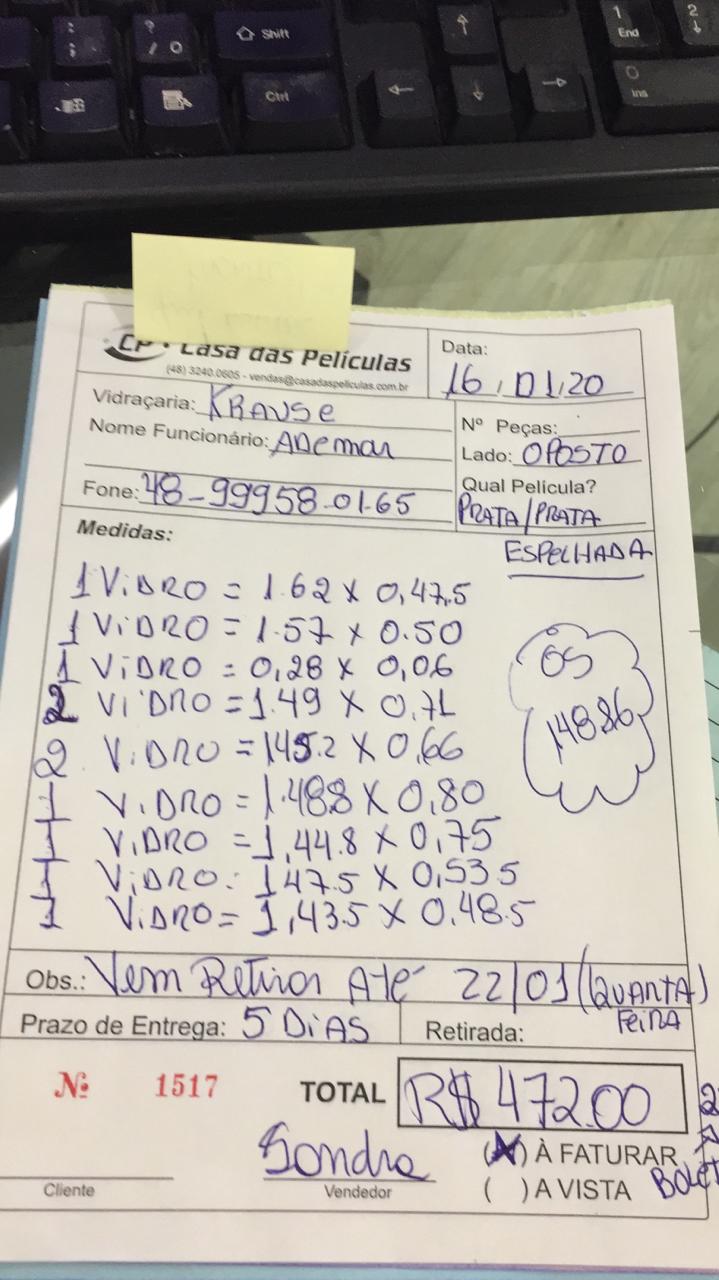 Shift
Ctrl
1
End
2
0
Ins
CP • Casa das Películas
(48) 3240.0605 - vendas@casadaspeliculas.com.br
Data:
16.01.20
Vidraçaria: KRAUSE
Nome Funcionário: ADemar
Fone: 48-99958-0165
Nº Peças:
Lado: OPOSTO
Qual Película?
PRATA/PRATA
ESPELHADA
Medidas:
1 ViDRO = 1.62 x 0,47,5
1 ViDRO = 1.57 x 0.50
1 ViDRO = 0,28 x 0,06
2 ViDRO = 1.49 x 0,71
2 ViDRO = 145.2 x 0,66
1 ViDRO = 1.488 x 0,80
1 ViDRO = 1,44.8 x 0,75
1 ViDRO = 147.5 x 0,535
1 ViDRO = 1,43.5 x 0,48.5
OS
14886
Obs.: Vem Retirar Até 22/01 (QUARTA)
FEIRA
Prazo de Entrega: 5 DiAS
Retirada:
Nº 1517
TOTAL R$ 472.00
Sondra
Cliente
Vendedor
(X) À FATURAR
( ) A VISTA
BOLET